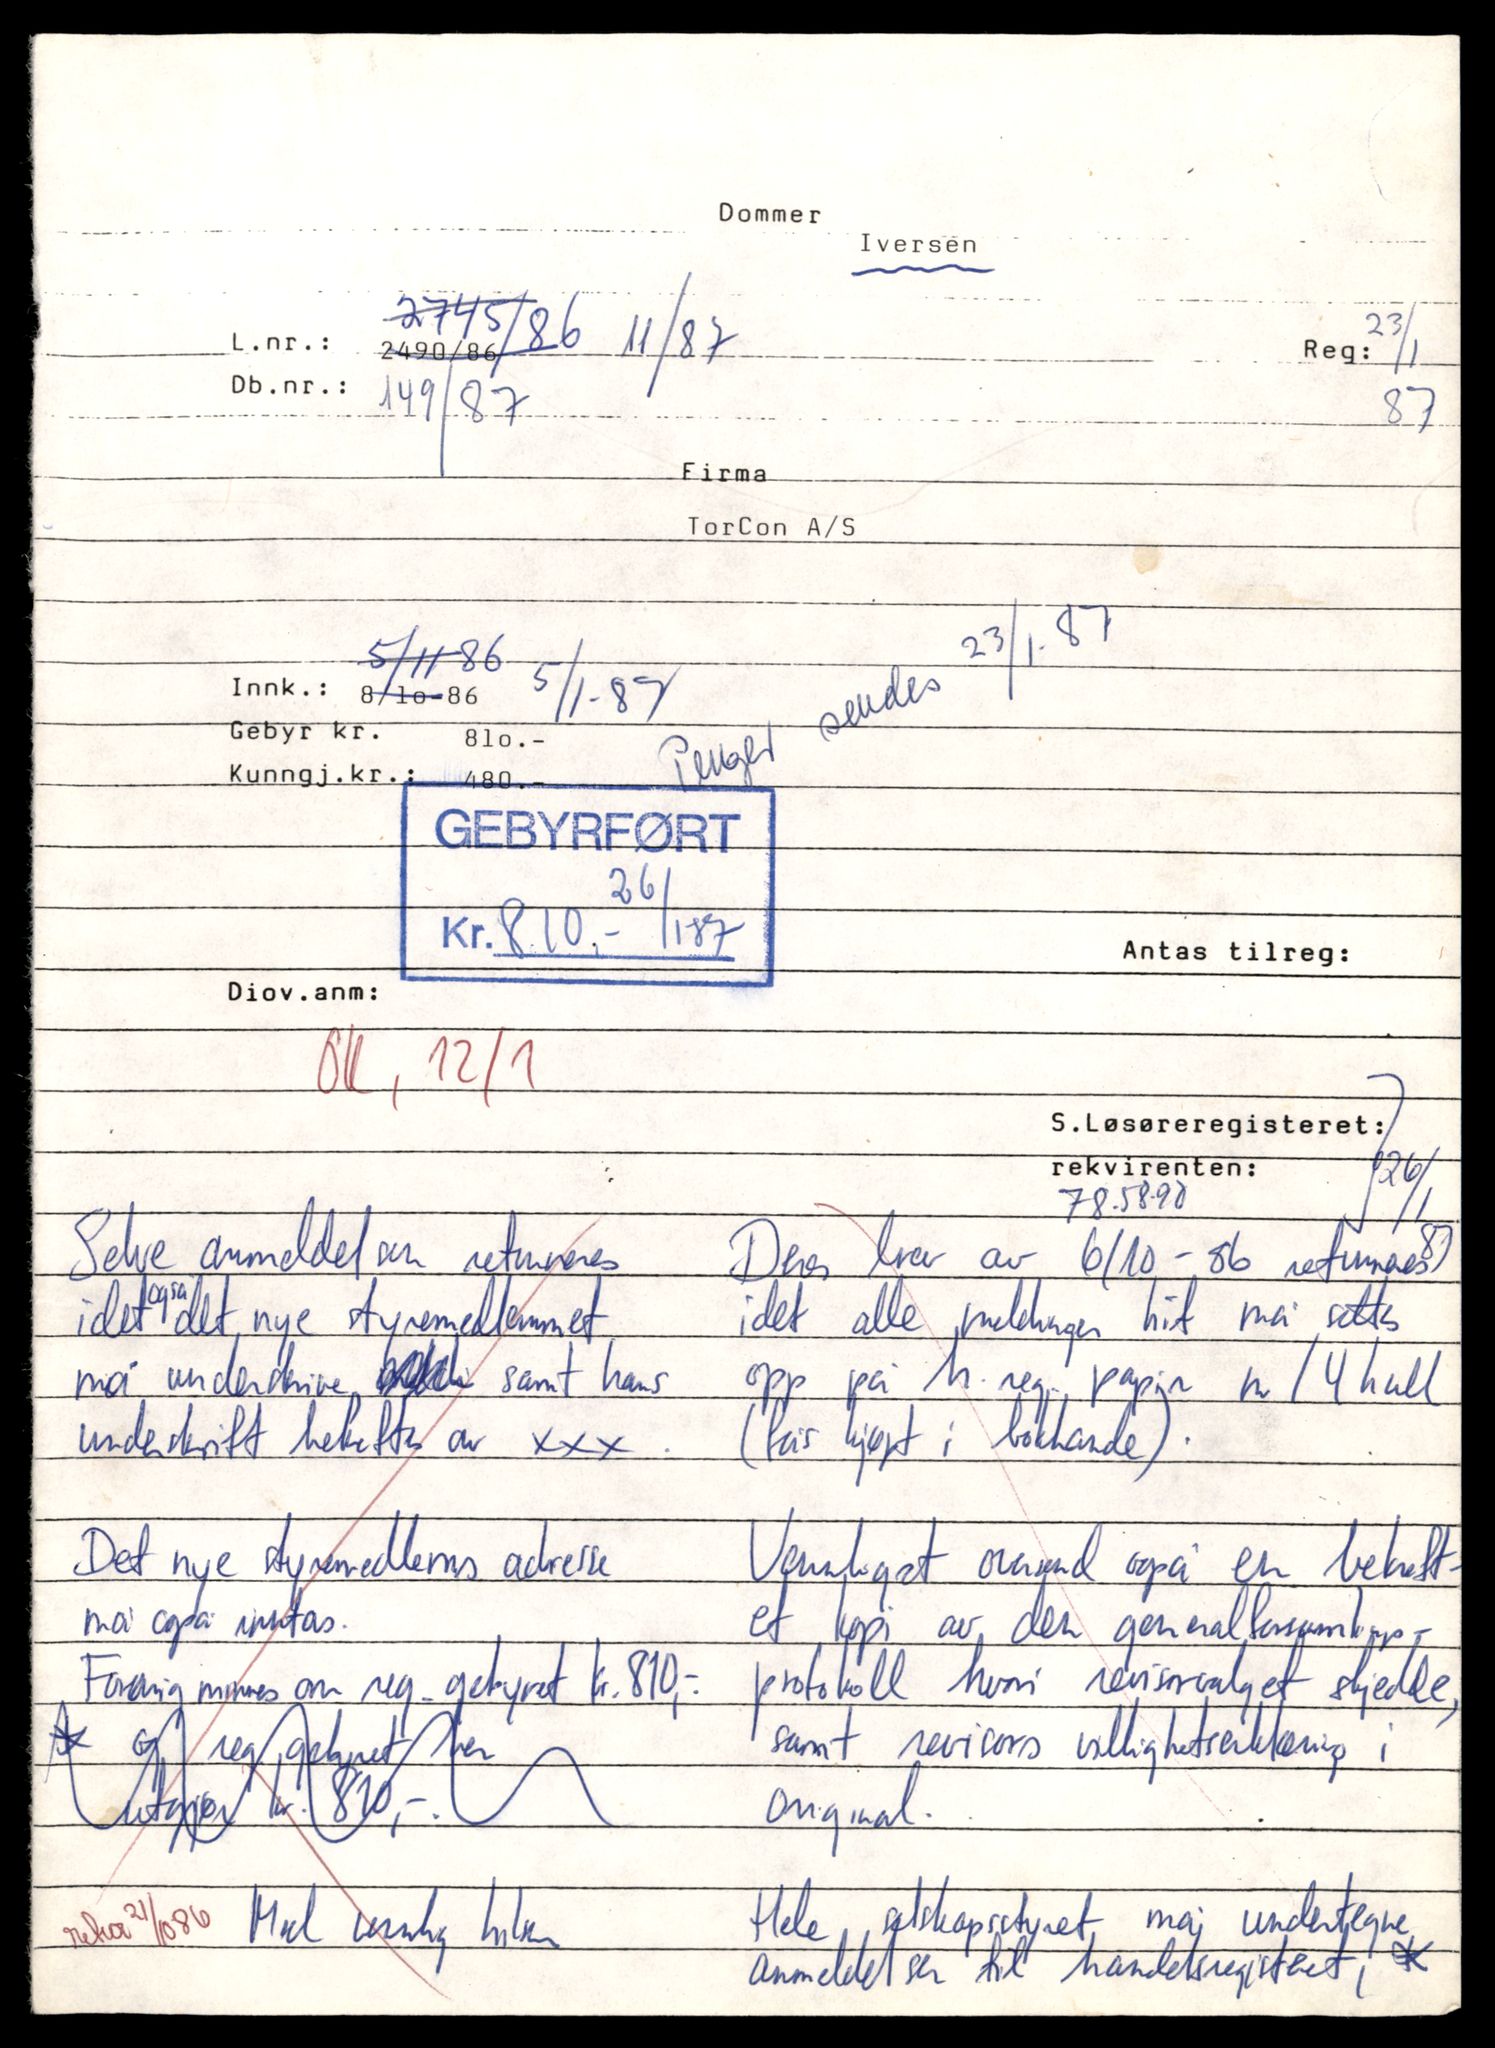 Dommer
Iversen
2745/86 11/87
L.nr.: 2490/86
Reg: 23/1 87
Db.nr.: 149/87
Firma
TorCon A/S
5/11 86
Innk.: 8/10-86 5/1-87
Penger sendes 23/1-87
Gebyr kr. 810.-
Kunngj.kr.: 480.-
GEBYRFØRT
26/1 87
Kr. 810,-
Antas tilreg:
Diov.anm:
OK, 12/1
S.Løsøreregisteret:
rekvirenten: 26/1 87
78.58.90
Selve anmeldelsen returneres
idet også det nye styremedlemmet
må underskrive samt hans
underskrift bekreftes av xxx.
Det nye styremedlems adresse
må også inntas.
Forøvrig minnes om reg.gebyret kr. 810,-.
* og reg.gebyret her
utgjør kr. 810,-.
retur 21/10 86
Med vennlig hilsen
Deres brev av 6/10-86 returneres
idet alle meldinger hit må settes
opp på h.reg. papir m/4 hull
(fås kjøpt i bokhande).
Vennligst oversend også en bekreft-
et kopi av den generalforsamlings-
protokoll hvori revisorvalget skjedde,
samt revisors villighetserklæring i
original.
Hele selskapsstyret må undertegne
anmeldelsen til handelsregisteret, *